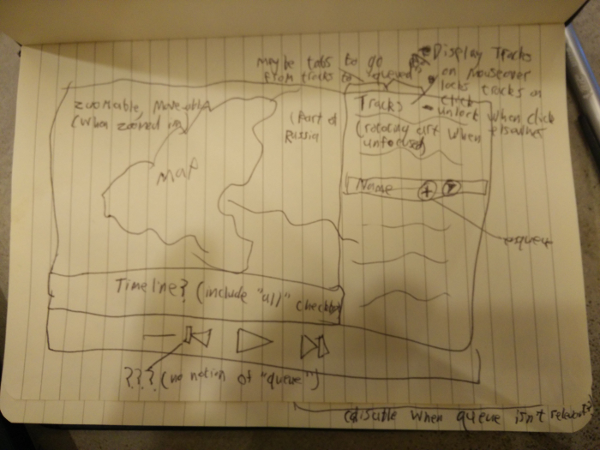 maybe tabs to go
from tracks to "queued"
Display Tracks
on mouseover
locks tracks on
click
unlock when click
elsewhere
zoomable, moveable
(when zoomed in)
(Part of
Russia)
Tracks
(rotating art when
unfocused)
MAP
Name
+
request
Timeline? (include "all" checkbox)
??? (no notion of "queue")
(disable when queue isn't relevant)